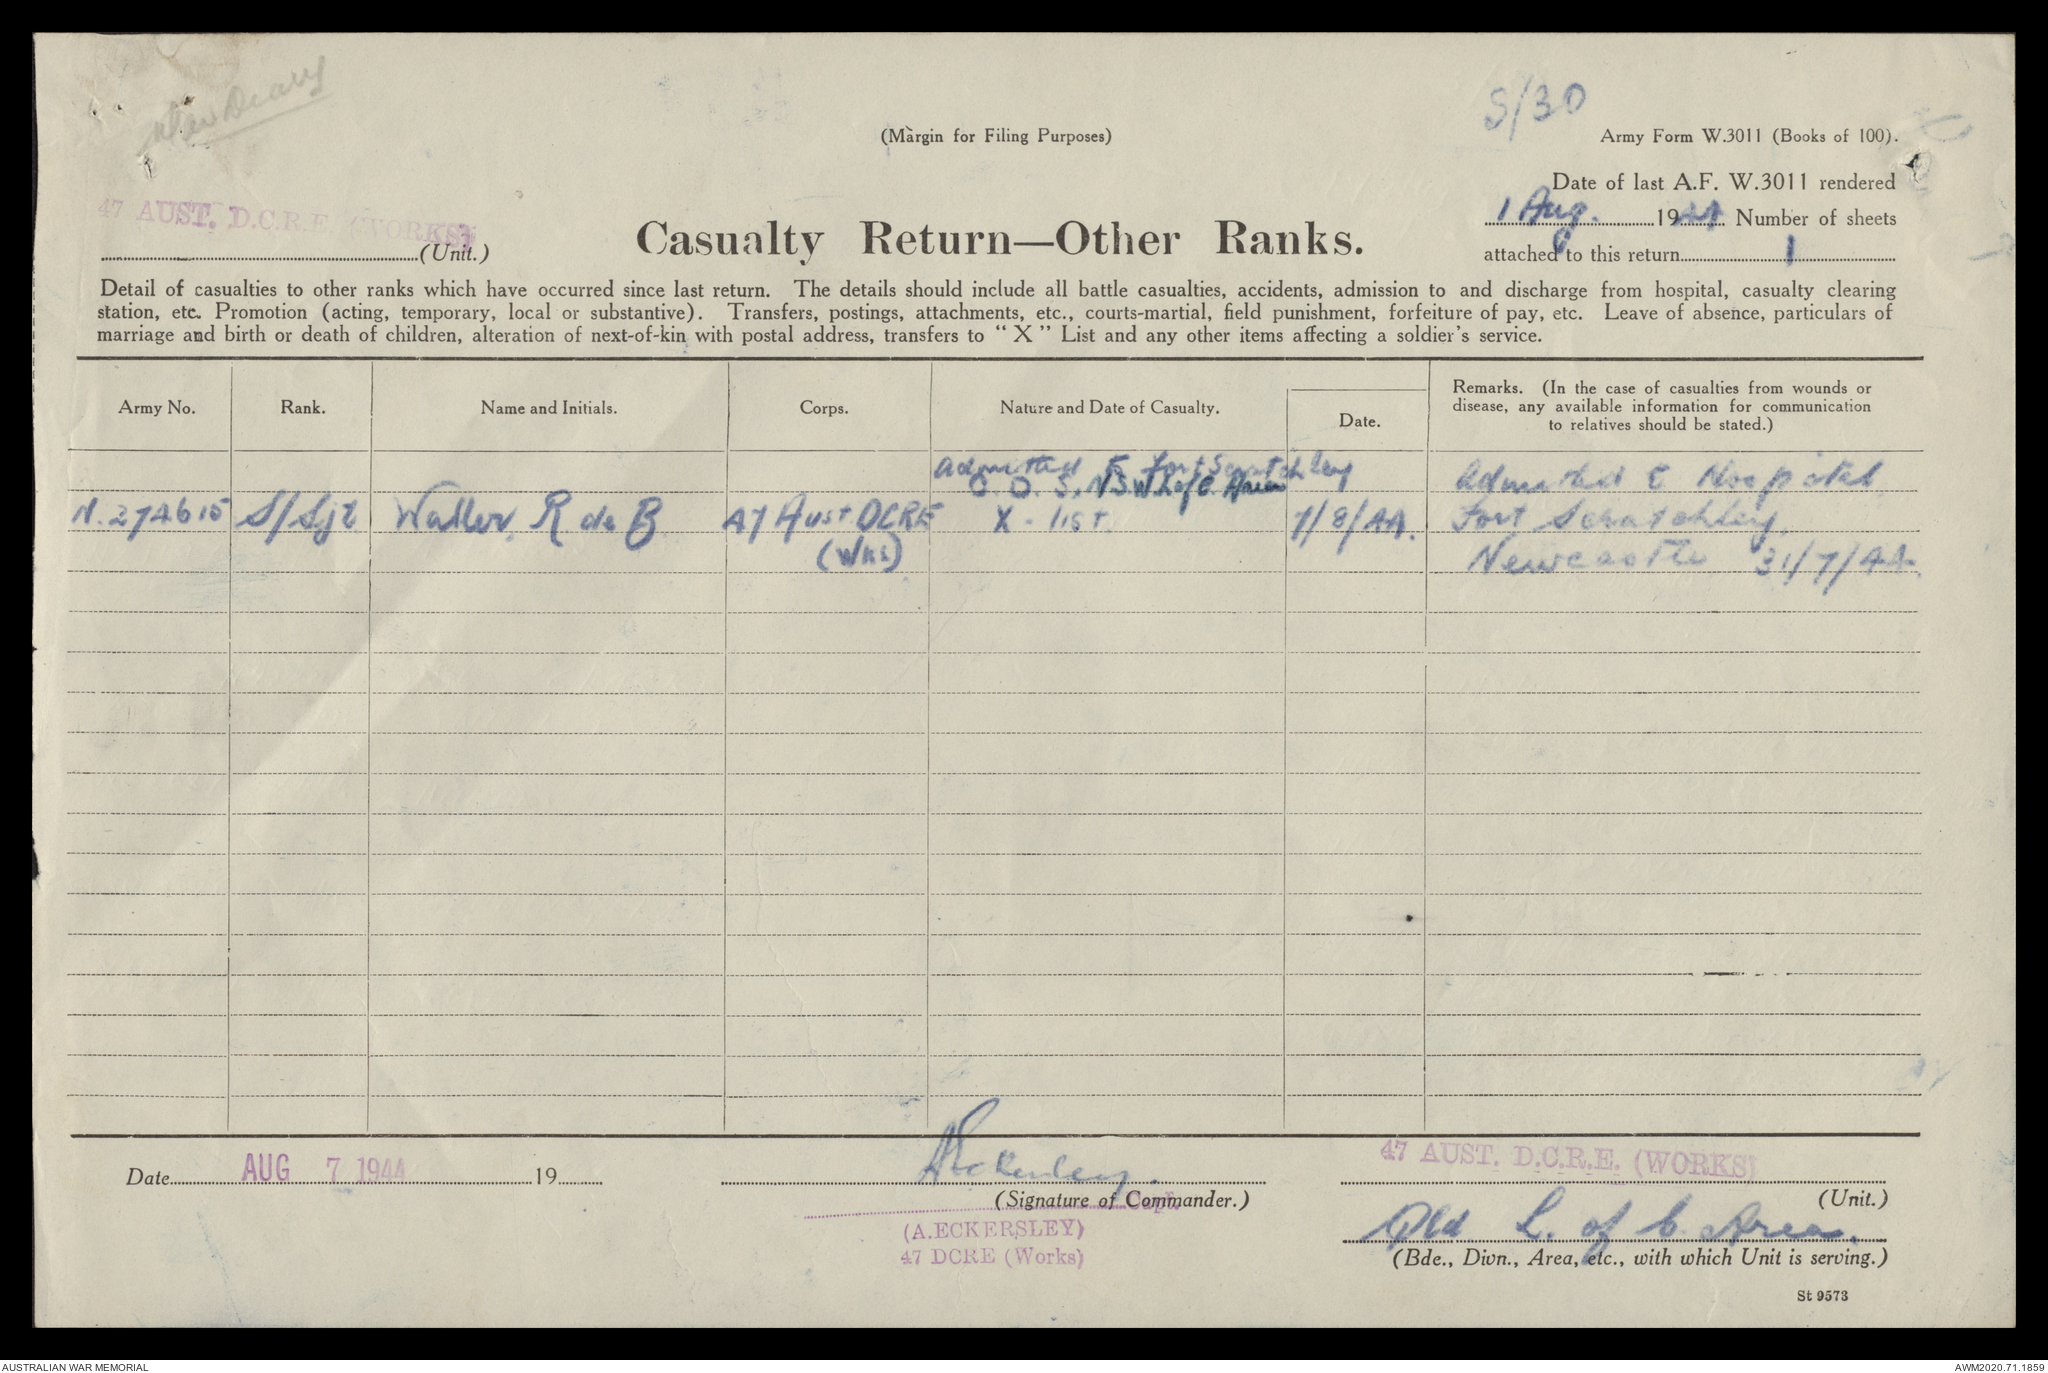 War Diary
S/30
(Margin for Filing Purposes)
Army Form W.3011 (Books of 100).
Date of last A.F. W.3011 rendered
1 Aug. 1944 Number of sheets
attached to this return 1
47 AUST. D.C.R.E. (WORKS)
(Unit.)
Casualty Return—Other Ranks.
Detail of casualties to other ranks which have occurred since last return. The details should include all battle casualties, accidents, admission to and discharge from hospital, casualty clearing
station, etc. Promotion (acting, temporary, local or substantive). Transfers, postings, attachments, etc., courts-martial, field punishment, forfeiture of pay, etc. Leave of absence, particulars of
marriage and birth or death of children, alteration of next-of-kin with postal address, transfers to "X" List and any other items affecting a soldier's service.
Army No. Rank. Name and Initials. Corps. Nature and Date of Casualty. Date. Remarks. (In the case of casualties from wounds or
disease, any available information for communication
to relatives should be stated.)
Admitted to Fort Scratchley Admitted to Hospital
N.S.W. L of C. Area
N.274615 S/Sjt Waller, R de B 47 Aust DCRE X-list 7/8/44. Fort Scratchley,
(Wks) Newcastle 31/7/44.
Date AUG 7 1944 19
A Eckersley.
(Signature of Commander.)
Capt.
(A.ECKERSLEY)
47 DCRE (Works)
47 AUST. D.C.R.E. (WORKS)
(Unit.)
Qld. L. of C. Area.
(Bde., Divn., Area, etc., with which Unit is serving.)
St 9573
AUSTRALIAN WAR MEMORIAL
AWM2020.71.1859